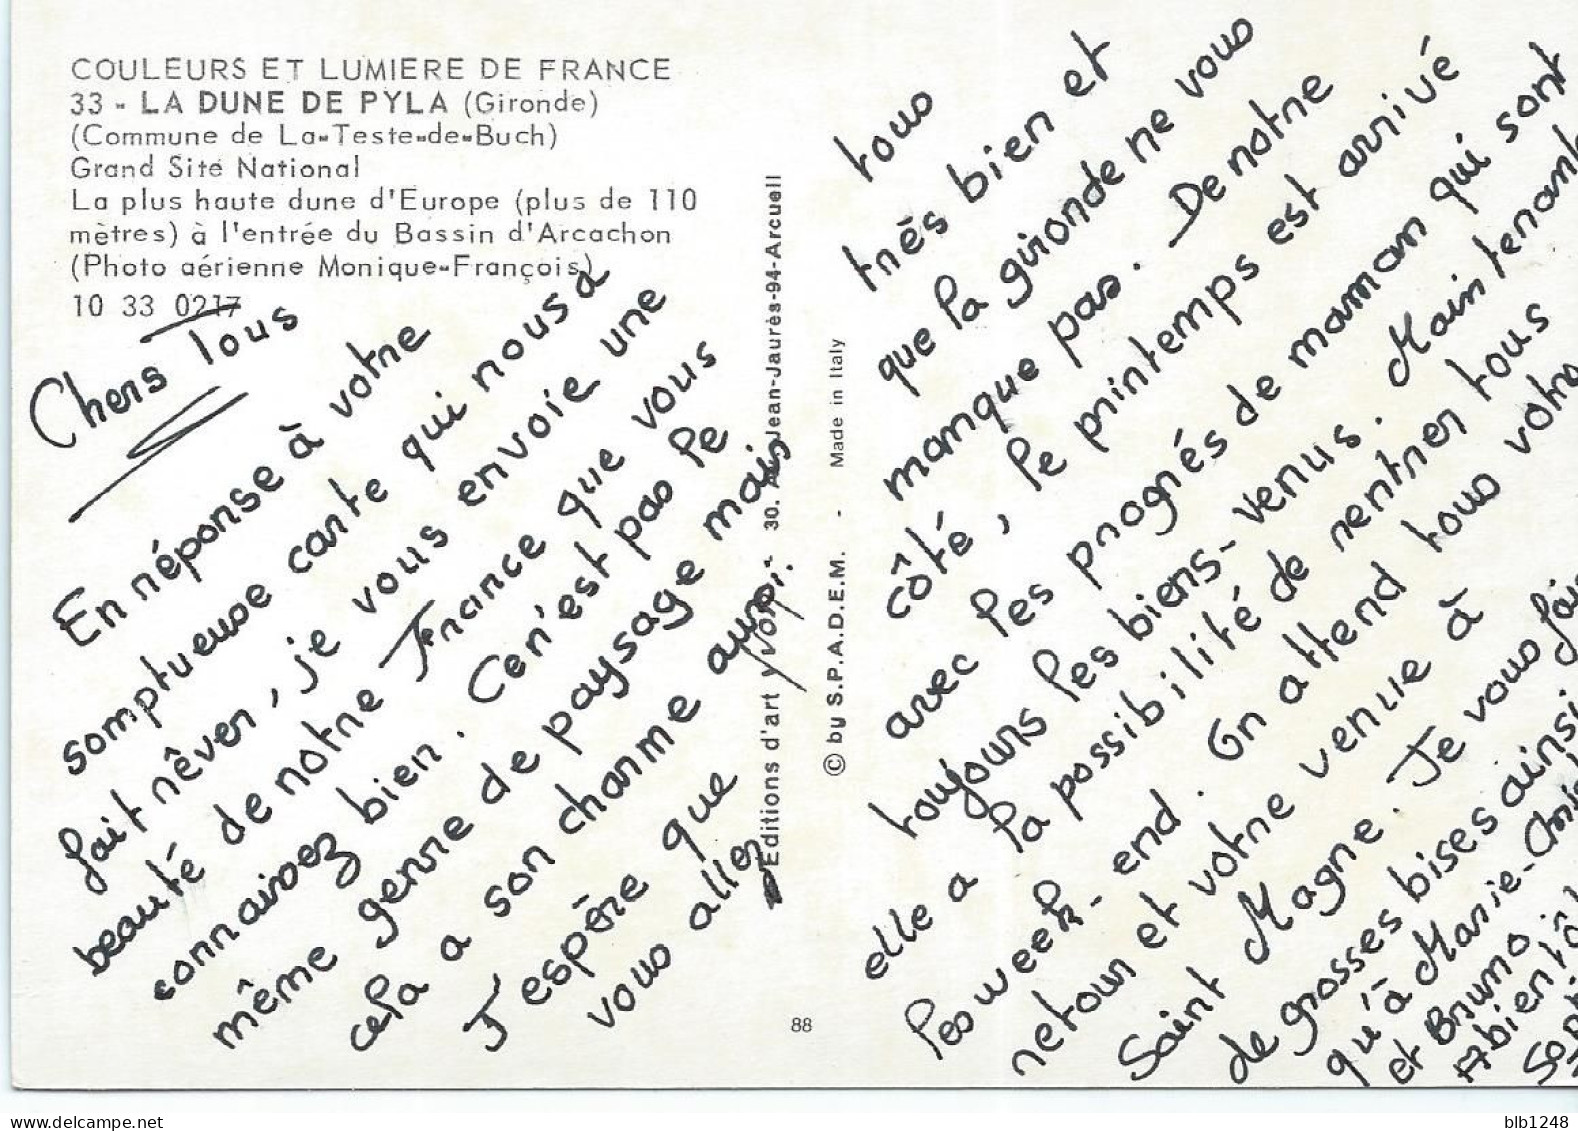 COULEURS ET LUMIERE DE FRANCE
33 - LA DUNE DE PYLA (Gironde)
(Commune de La-Teste-de-Buch)
Grand Site National
La plus haute dune d'Europe (plus de 110
mètres) à l'entrée du Bassin d'Arcachon
(Photo aérienne Monique-François)
10 33 0217
Chers Tous
En réponse à votre
somptueuse carte qui nous a
fait rêver, je vous envoie une
beauté de notre France que vous
connaissez bien. Ce n'est pas le
même genre de paysage mais
cela a son charme aussi.
J'espère que
vous allez
Editions d'art yvon - 30. Av. Jean-Jaurès-94-Arcueil
© by S.P.A.D.E.M. - Made in Italy
88
tous
très bien et
que la gironde ne vous
manque pas. De notre
côté, le printemps est arrivé
avec les progrés de maman qui sont
toujours les biens-venus. Maintenant
elle a la possibilité de rentrer tous
les week-end. On attend tous votre
retour et votre venue à
Saint Magne. Je vous fais
de grosses bises ainsi
qu'à Marie-
et Bruno
A bientôt
blb1248